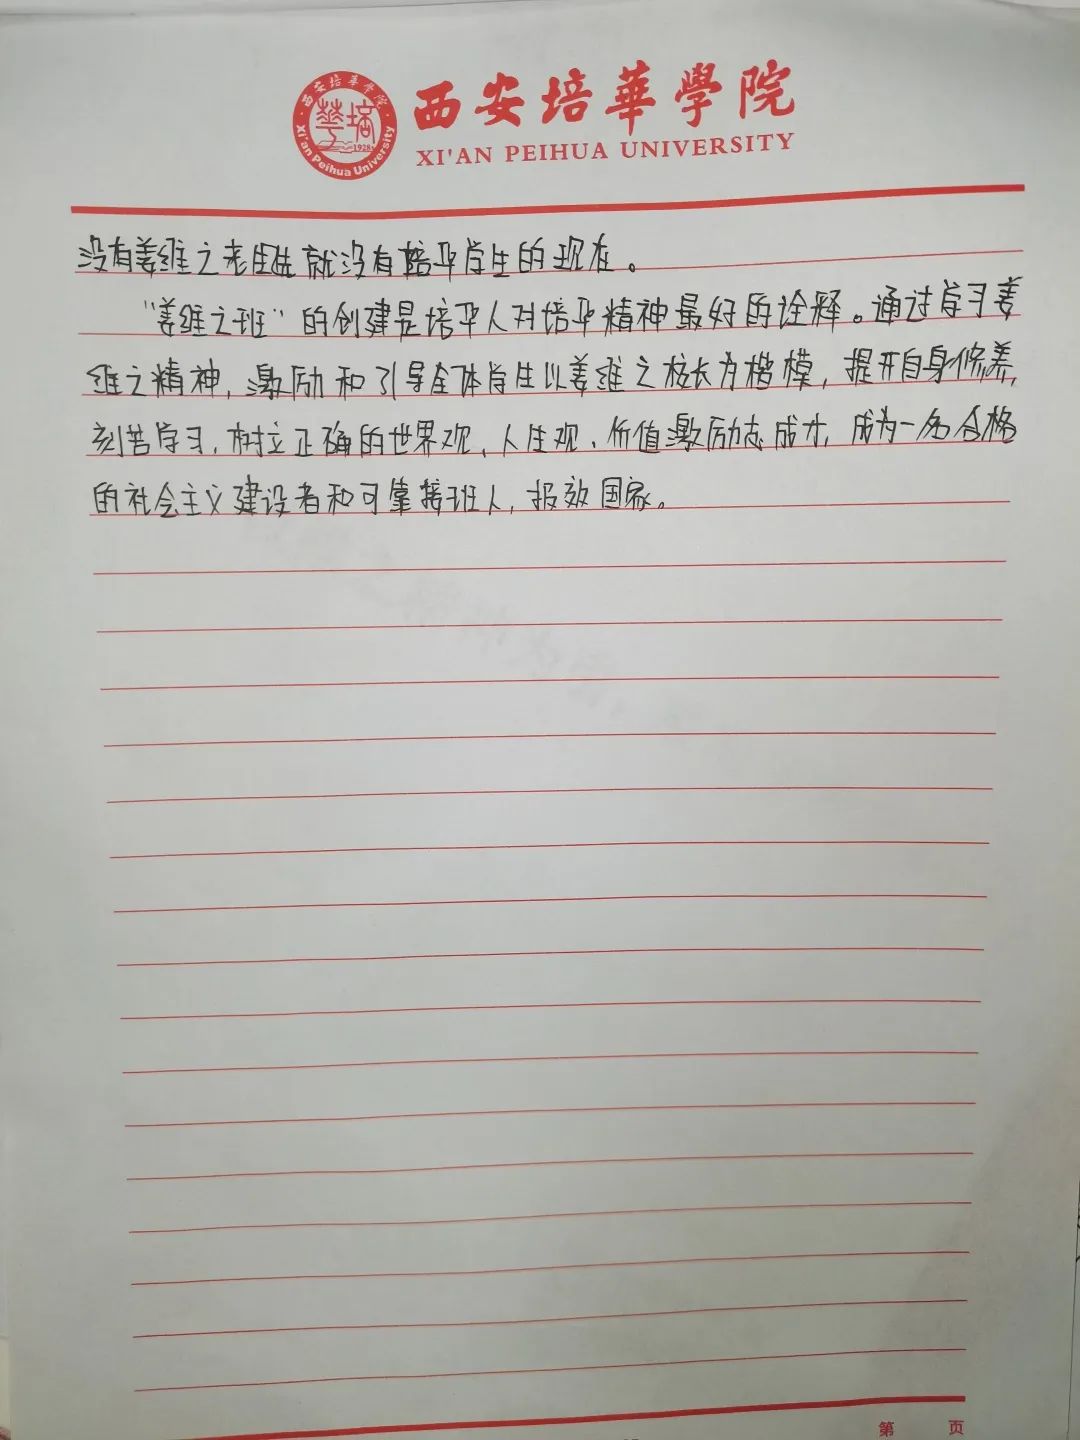 西安培華學院
XI'AN PEIHUA UNIVERSITY
西安培华学院
1928
Xi'an Peihua University
没有姜维之老先生就没有培华学生的现在。
“姜维之班”的创建是培华人对培华精神最好的诠释。通过学习姜
维之精神,激励和引导全体学生以姜维之校长为楷模,提升自身修养,
刻苦学习,树立正确的世界观、人生观、价值激励志成才,成为一名合格
的社会主义建设者和可靠接班人,报效国家。
第 页